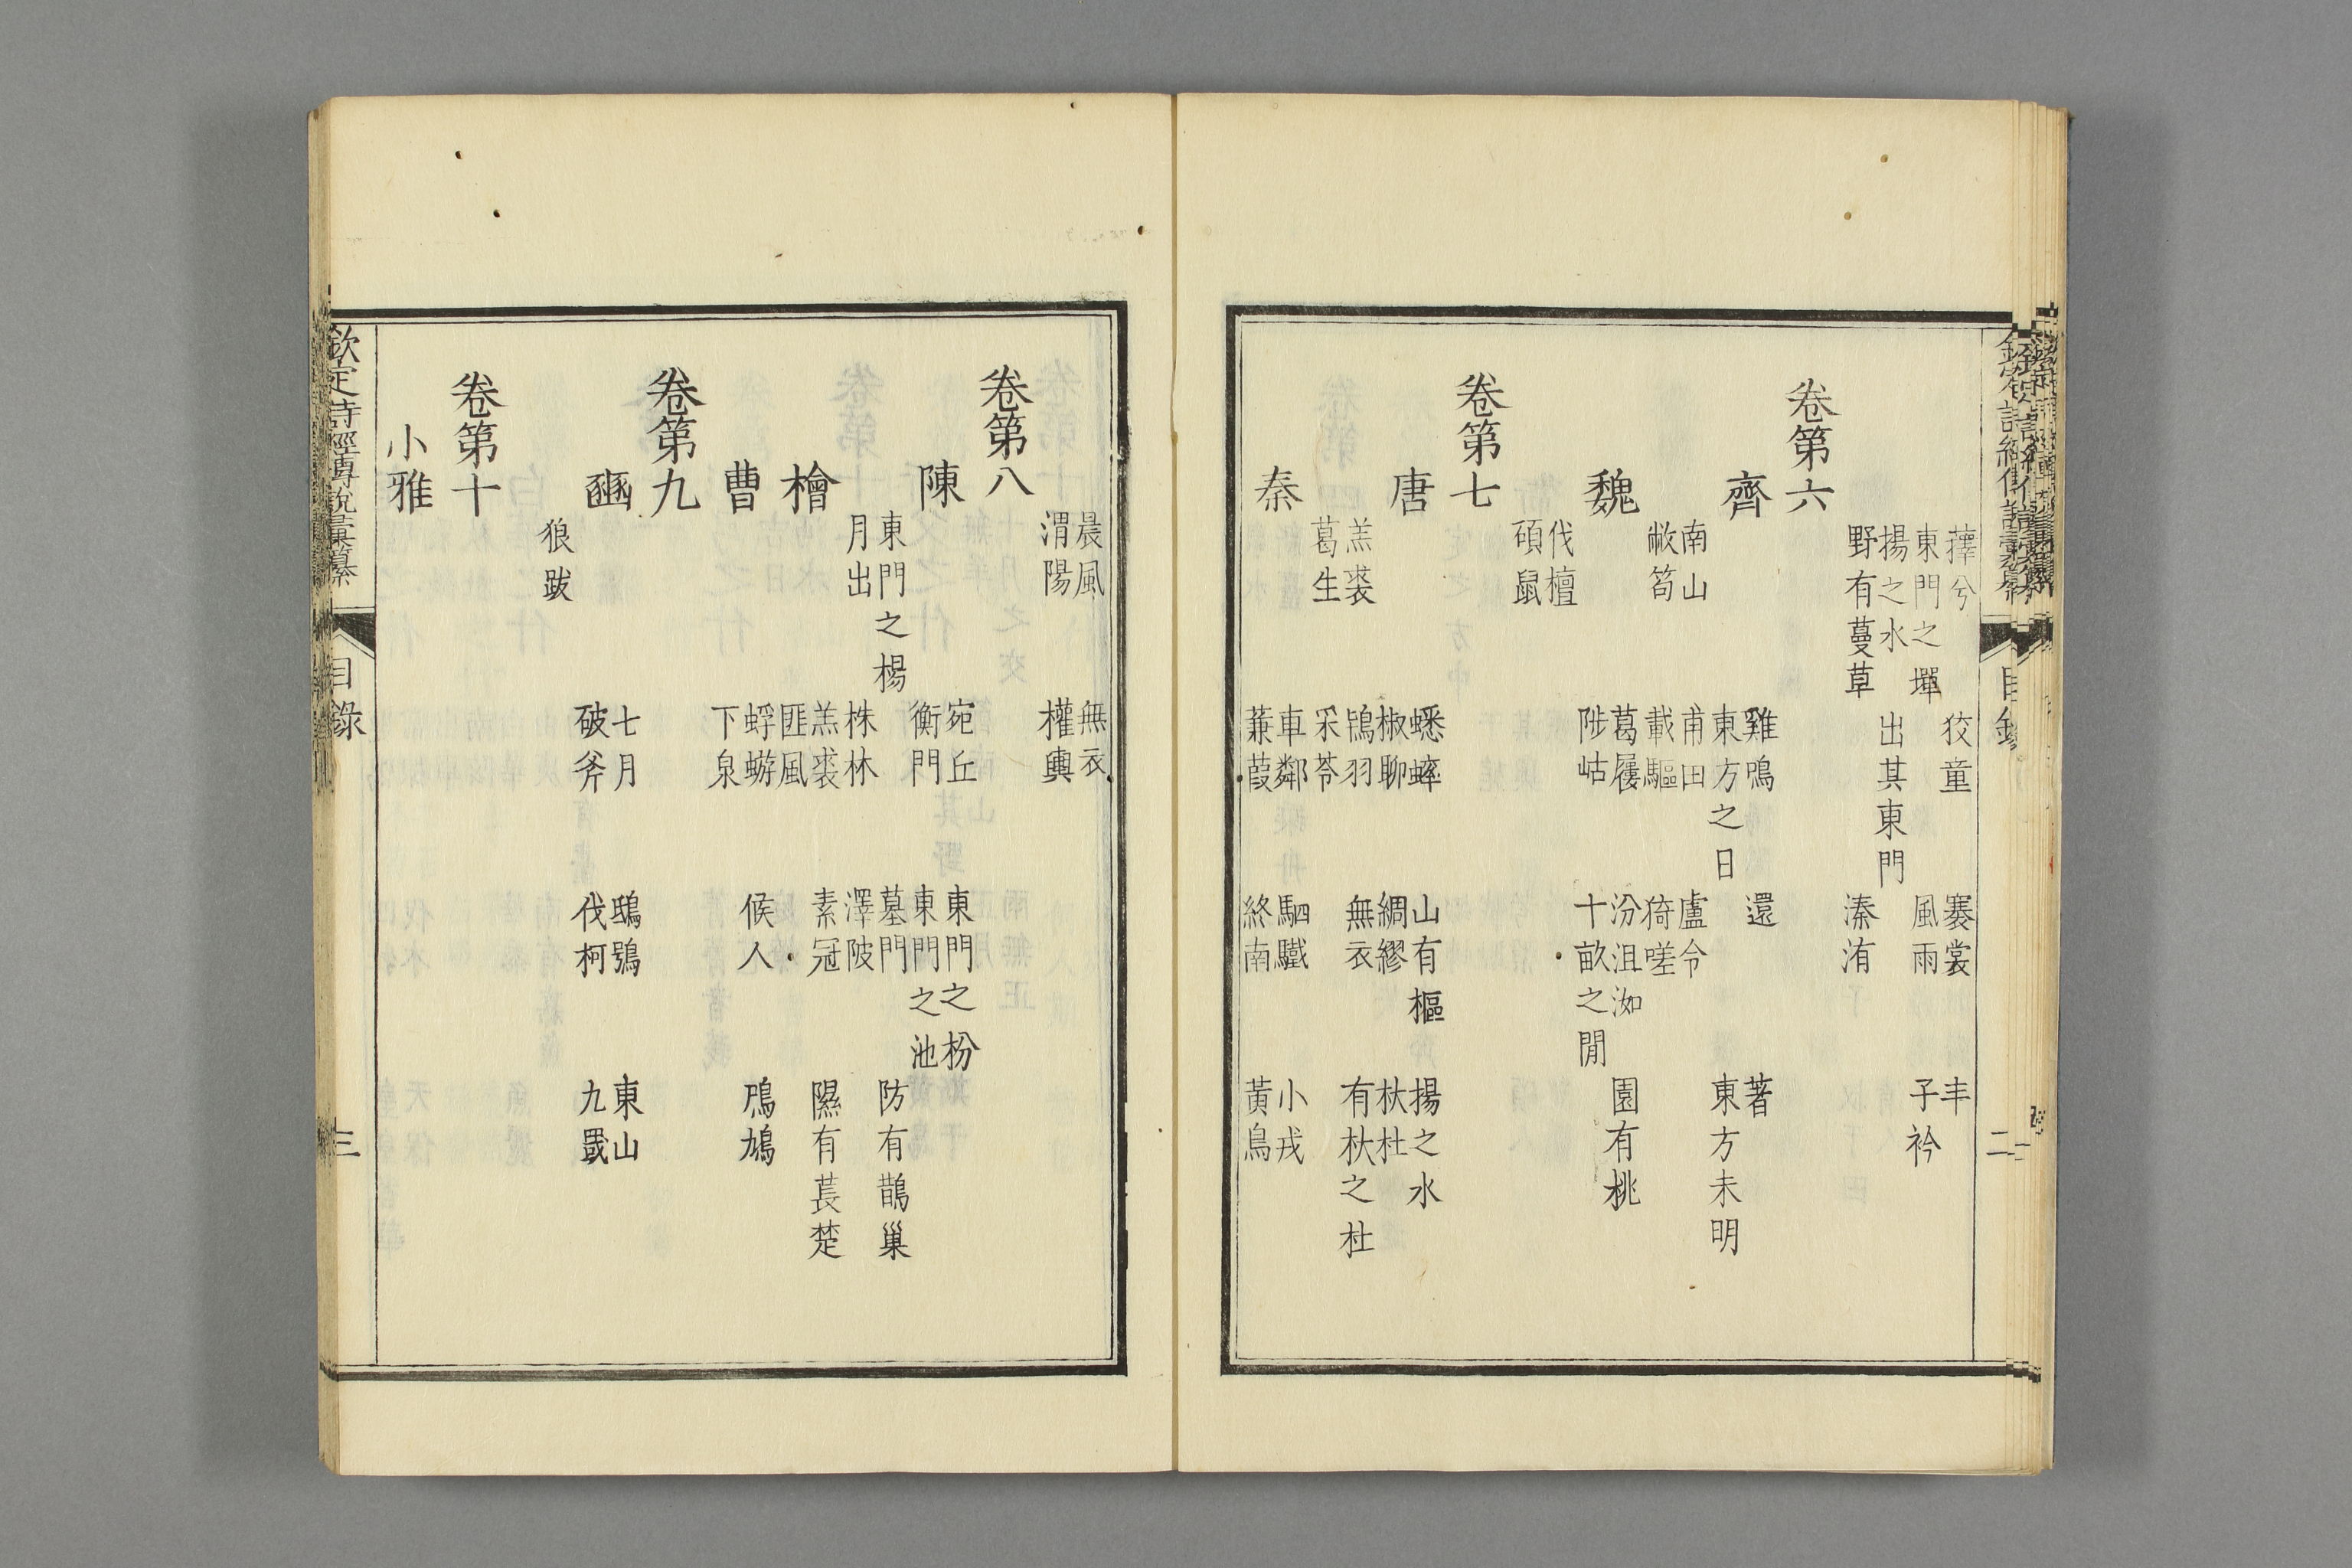 欽定詩經傳說彙纂 目錄 二
蘀兮 狡童 褰裳 丰
東門之墠 風雨 子衿
揚之水 出其東門
野有蔓草 溱洧
卷第六
齊 雞鳴 還 著
東方之日 東方未明
南山 甫田 盧令
敝笱 載驅 猗嗟
魏 葛屨 汾沮洳 園有桃
陟岵 十畝之閒
伐檀
碩鼠
卷第七
唐 蟋蟀 山有樞 揚之水
椒聊 綢繆 杕杜
羔裘 鴇羽 無衣 有杕之杜
葛生 采苓
秦 車鄰 駟驖 小戎
蒹葭 終南 黃鳥
晨風 無衣
渭陽 權輿
卷第八
陳 宛丘 東門之枌
衡門 東門之池
東門之楊 墓門 防有鵲巢
月出 株林 澤陂
檜 羔裘 素冠 隰有萇楚
匪風
曹 蜉蝣 候人 鳲鳩
下泉
卷第九
豳 七月 鴟鴞 東山
破斧 伐柯 九罭
狼跋
卷第十
小雅
欽定詩經傳說彙纂 目錄 三